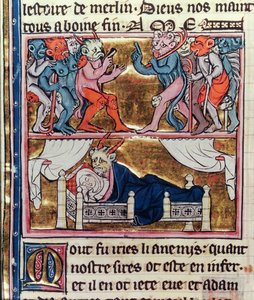 lestoire de merlin. Diens nos maint
tous a boine fin. A M E
Mout fu iries li anemis; quant
nostre sires ot este en infer.
et il en ot iete eue et adam